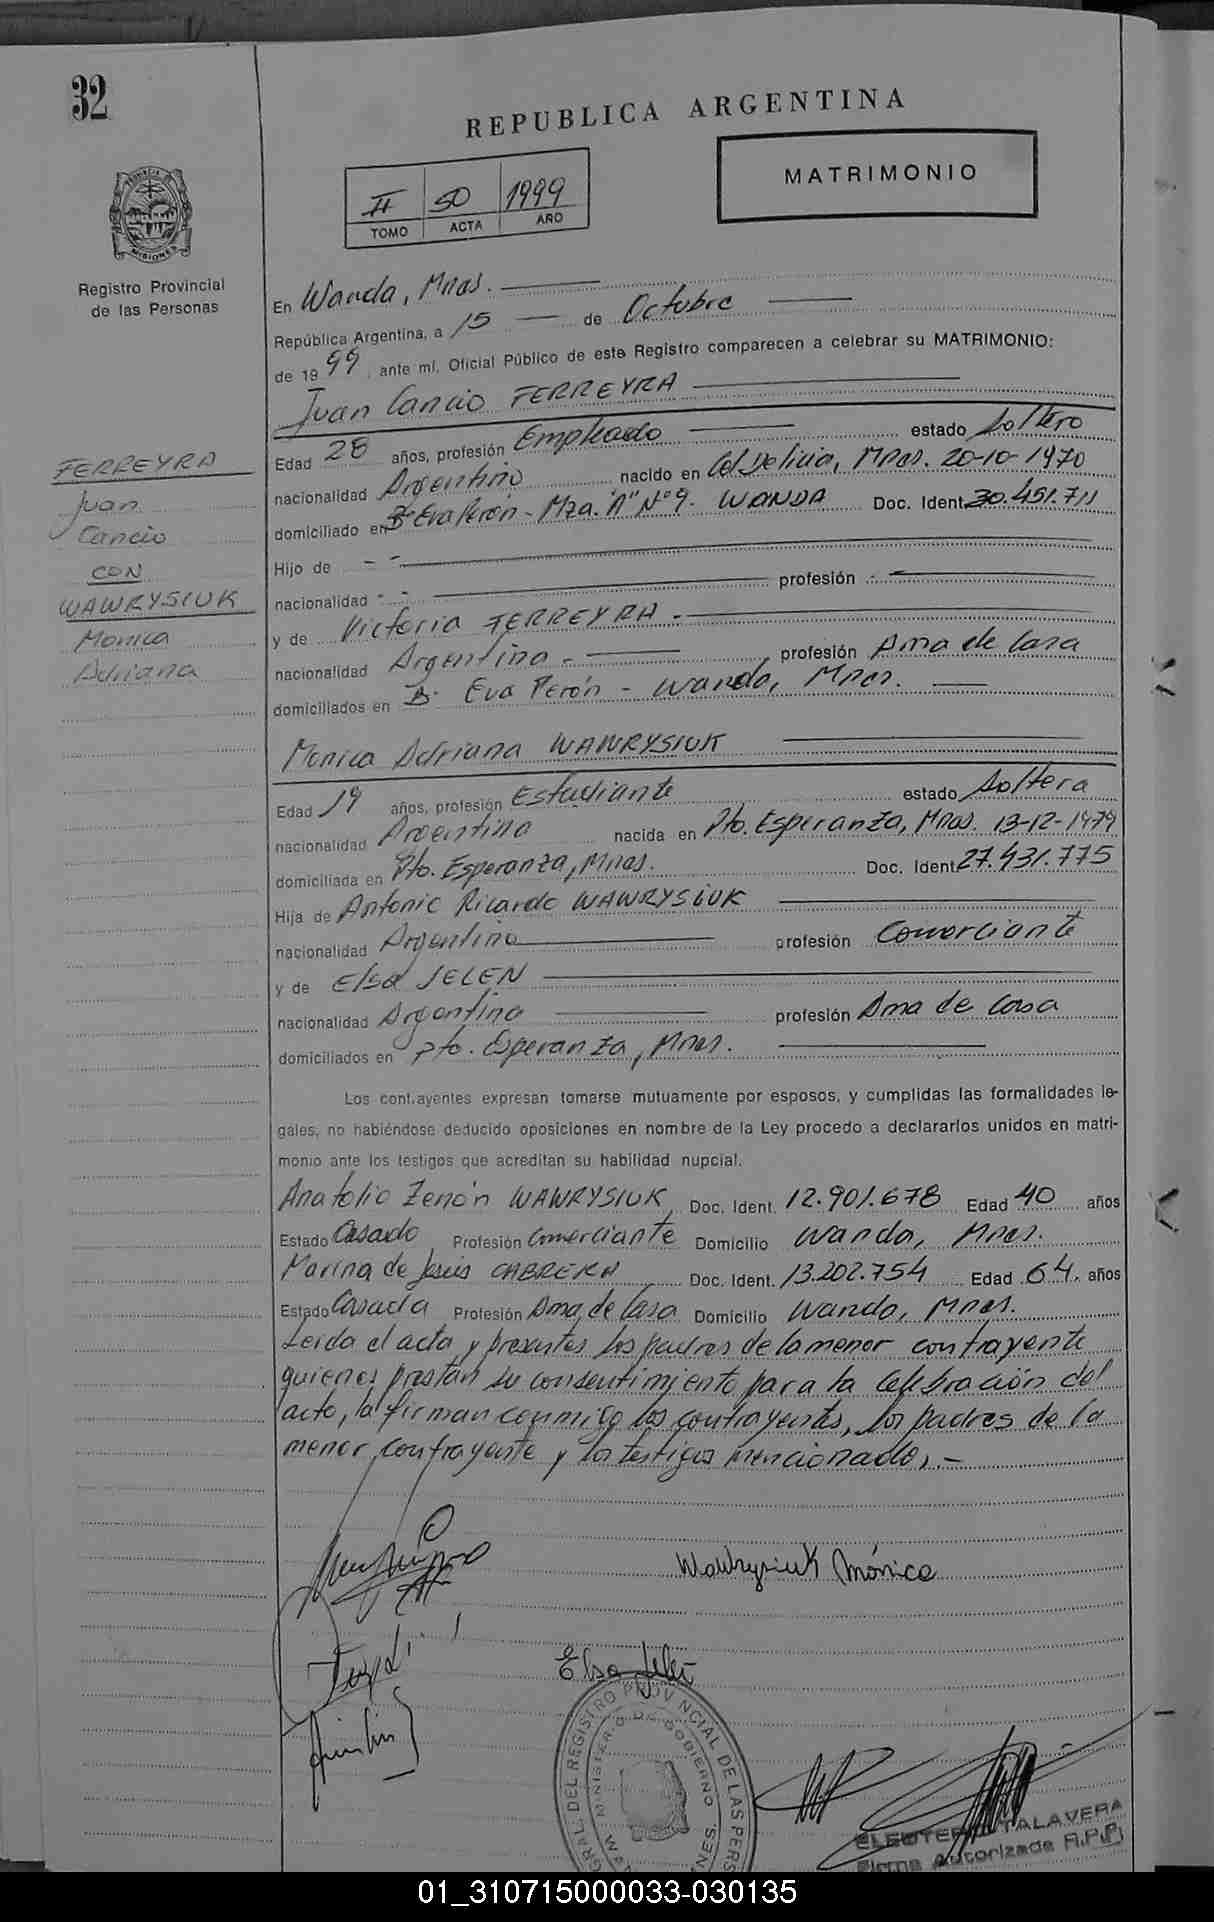 32
REPUBLICA ARGENTINA
MATRIMONIO
II 50 1999
TOMO ACTA AÑO
PROVINCIA DE MISIONES
Registro Provincial
de las Personas
En Wanda, Mnes.
República Argentina, a 15 de Octubre
de 1999, ante mí, Oficial Público de este Registro comparecen a celebrar su MATRIMONIO:
Juan Cancio FERREYRA
Edad 28 años, profesión Empleado estado Soltero
nacionalidad Argentino nacido en Col. Delicia, Mnes. 20-10-1970
domiciliado en B° Eva Perón - Mza. "A" N° 9. WANDA Doc. Ident. 30.451.711
Hijo de - -
nacionalidad - - profesión -
y de Victoria FERREYRA.-
nacionalidad Argentina.- profesión Ama de Casa
domiciliados en B° Eva Perón - Wanda, Mnes.
FERREYRA
Juan
Cancio
CON
WAWRYSIUK
Monica
Adriana
Monica Adriana WAWRYSIUK
Edad 19 años, profesión Estudiante estado Soltera
nacionalidad Argentina nacida en Pto. Esperanza, Mnes. 13-12-1979
domiciliada en Pto. Esperanza, Mnes. Doc. Ident. 27.431.775
Hija de Antonio Ricardo WAWRYSIUK
nacionalidad Argentino profesión Comerciante
y de Elsa JELEN
nacionalidad Argentina profesión Ama de Casa
domiciliados en Pto. Esperanza, Mnes.
Los contrayentes expresan tomarse mutuamente por esposos, y cumplidas las formalidades le-
gales, no habiéndose deducido oposiciones en nombre de la Ley procedo a declararlos unidos en matri-
monio ante los testigos que acreditan su habilidad nupcial.
Anatolio Zenón WAWRYSIUK Doc. Ident. 12.901.678 Edad 40 años
Estado Casado Profesión Comerciante Domicilio Wanda, Mnes.
Marina de Jesús CABRERA Doc. Ident. 13.202.754 Edad 64. años
Estado Casada Profesión Ama de Casa Domicilio Wanda, Mnes.
Leida el acta y presentes los padres de la menor contrayente
quienes prestan su consentimiento para la celebración del
acto, la firman conmigo los contrayentes, los padres de la
menor contrayente y los testigos mencionados.-
Wawrysiuk Mónica
Elsa Jelen
REGISTRO PROVINCIAL DE LAS PERS
MINISTERIO DE GOBIERNO
TALAVERA
Firma Autorizada R.P.P.
01_310715000033-030135